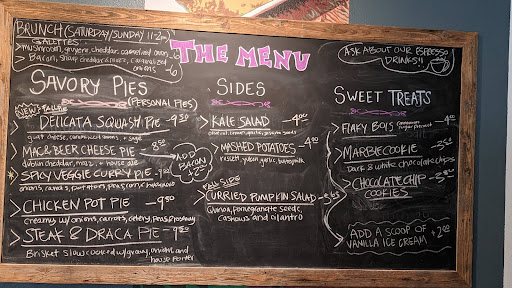 BRUNCH (SATURDAY/SUNDAY 11-2pm)
GALETTES
> mushroom, gruyere, cheddar, caramelized onion -6
> Bacon, sharp cheddar & mozz, caramelized onions -6
THE MENU
ASK ABOUT OUR ESPRESSO DRINKS!!
SAVORY PIES
(PERSONAL PIES)
NEW FALL PIE
DELICATA SQUASH PIE -9.50
goat cheese, caramelized onions, + sage
> MAC & BEER CHEESE PIE - 8.50
dublin cheddar, mozz, + house ale
ADD BACON +2
> SPICY VEGGIE CURRY PIE -9.00
onions, carrots, potatoes, peas,
> CHICKEN POT PIE -9.50
creamy w/ onions, carrots, celery, peas,
> STEAK & DRACA PIE -9.50
Brisket slow cooked w/ gravy, onion, and house porter
SIDES
> KALE SALAD - 4.00
> MASHED POTATOES -4.00
russet, yukon, garlic, buttermilk
FALL SIDE
> CURRIED PUMPKIN SALAD
Quinoa, pomegranate seeds, cashews and cilantro
SWEET TREATS
> FLAKY BOYS cinnamon sugar -4.00
> MARBLE COOKIE -3.50
Dark & white chocolate chips
> CHOCOLATE CHIP COOKIES
ADD A SCOOP OF VANILLA ICE CREAM +2.00